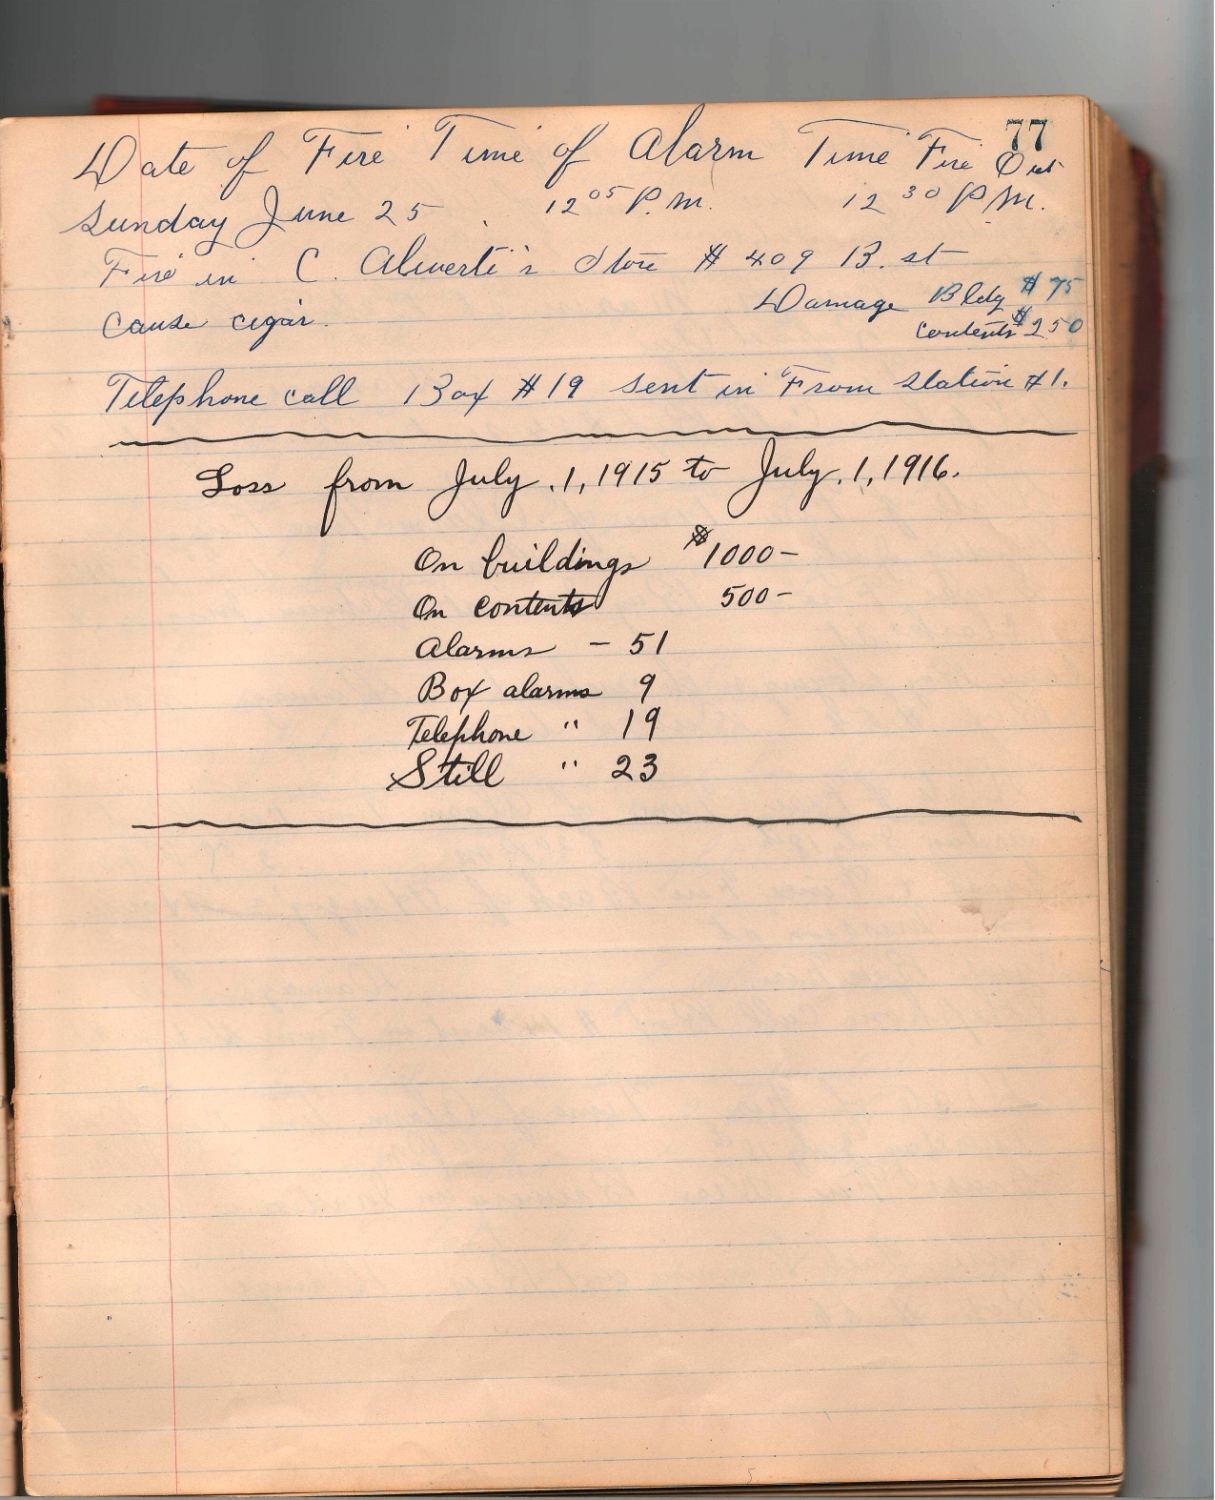 77
Date of Fire Time of Alarm Time Fire Out
Sunday June 25 12 05 P.M. 12 30 P.M.
Fire in C. Aliverti's Store # 409 B. st
Damage Bldg $ 75
Cause cigar.
contents $ 250
Telephone call Box # 19 sent in From Station #1.
Loss from July.1,1915 to July.1,1916.
On buildings $1000-
On contents 500-
Alarms - 51
Box alarms 9
Telephone " 19
Still " 23